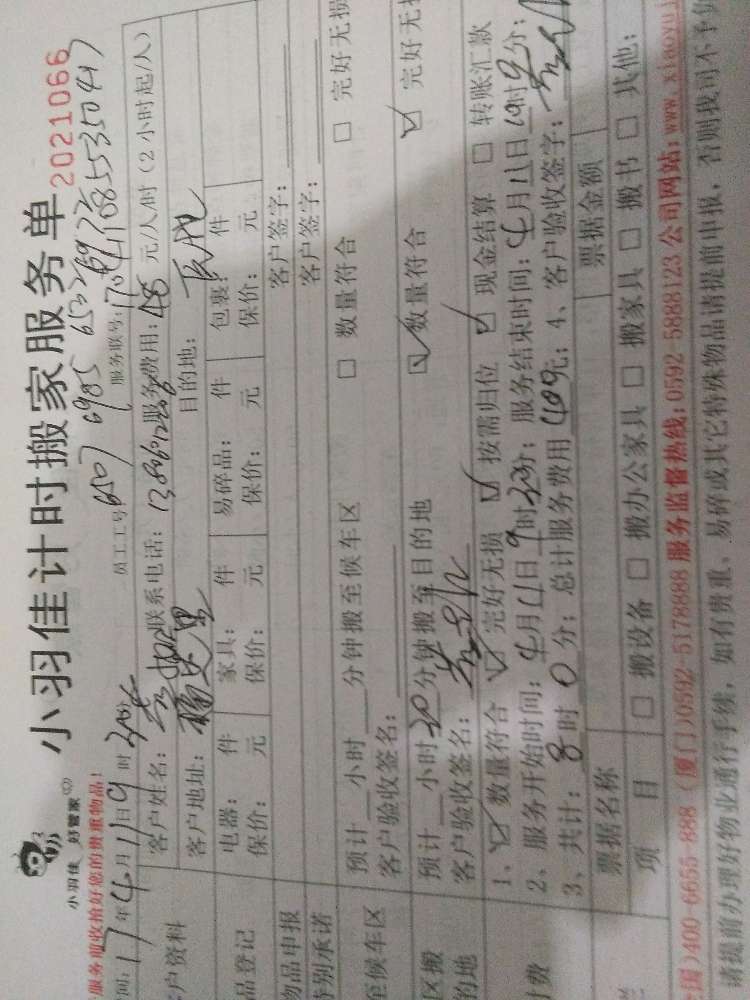 小羽佳计时搬家服务单
小羽佳 好管家
2021066
服务前收拾好您的贵重物品!
员工工号 6507 6985 6532
服务联号:
间: 17年4月11日9时20分
客户姓名: 联系电话: 服务费用: 48元/人/时(2小时起/人)
户资料
客户地址: 目的地:
品登记
电器: 件 家具: 件 易碎品: 件 包裹: 件
保价: 元 保价: 元 保价: 元 保价: 元
物品申报 客户签字:
特别承诺 客户签字:
预计 小时 分钟搬至候车区 □ 数量符合 □ 完好无损
至候车区 客户验收签名:
预计 小时20分钟搬至目的地 ☑ 数量符合 ☑ 完好无损
区搬
的地 客户验收签名:
1、☑ 数量符合 ☑ 完好无损 ☑ 按需归位 ☑ 现金结算 □ 转账汇款
2、服务开始时间: 4月11日9时20分; 服务结束时间: 4月11日 时 分;
费 3、共计: 8时0分; 总计服务费用 元; 4、客户验收签字:
票据名称 票据金额
项 目 □ 搬设备 □ 搬办公家具 □ 搬家具 □ 搬书 □ 其他:
国)400-6655-888 (厦门)0592-5178888 服务监督热线:0592-5888123 公司网站:www.xiaoyuj
请提前办理好物业通行手续, 如有贵重、易碎或其它特殊物品请提前申报, 否则我司不予负